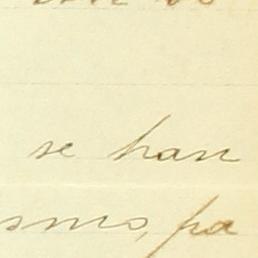 se han
smo, pa